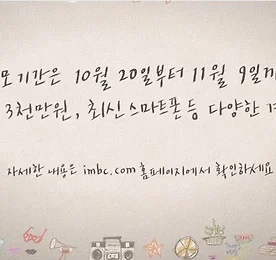 모기간은 10월 20일부터 11월 9일까
3천만원, 최신 스마트폰 등 다양한
자세한 내용은 imbc.com 홈페이지에서 확인하세요